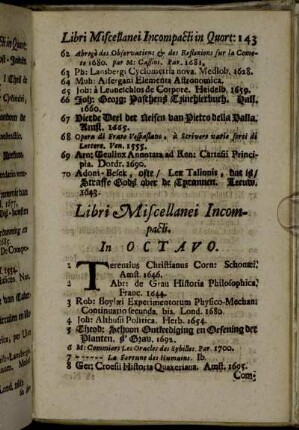 Libri Miscellanei Incompacti in Quart: 143
62 Abregè des Observations & des Reflexions sur la Come-
te 1680. par M: Cassini. Par. 1681.
63 Ph: Lansbergi Cyclometria nova. Mediob. 1628.
64 Muh: Alfergani Elementa Astronomica.
65 Joh: à Leoneichlos de Corpore. Heidelb. 1659.
66 Joh: Georg: Paschens Hall.
1660.
67 Vierde Deel der Reisen van Pietro della Valla.
Amst. 1665.
68 Opera di Frate Vespasiano, à Scrivere varie sorti di
Lettere. Ven. 1555.
69 Arn: Geulinx Annotata ad Ren: Cartesii Princi-
pia. Dordr. 1690.
70 Adoni-Besek, ofte / Lex Talionis, dat is/
Straffe Godts over de Tyrannen. Leeuw.
1643.
Libri Miscellanei Incom-
pacti.
In OCTAVO.
1 Terentius Christianus Corn: Schonæi.
Amst. 1646.
2 Abr: de Grau Historia Philosophica.
Franc. 1644.
3 Rob: Boylei Experimentorum Physico-Mechan:
Continuatio secunda, bis. Lond. 1680.
4 Joh: Althusii Politica. Herb. 1654.
5 Theod: Schoon Ontlediging en Oefening der
Planten. s'Grav. 1692.
6 M: Commiers Les Oracles des Sybilles. Par. 1700.
7 - - - - - - La Fortune des Humains. Ib.
8 Ger: Croesii Historia Quakeriana. Amst. 1695.
Com: